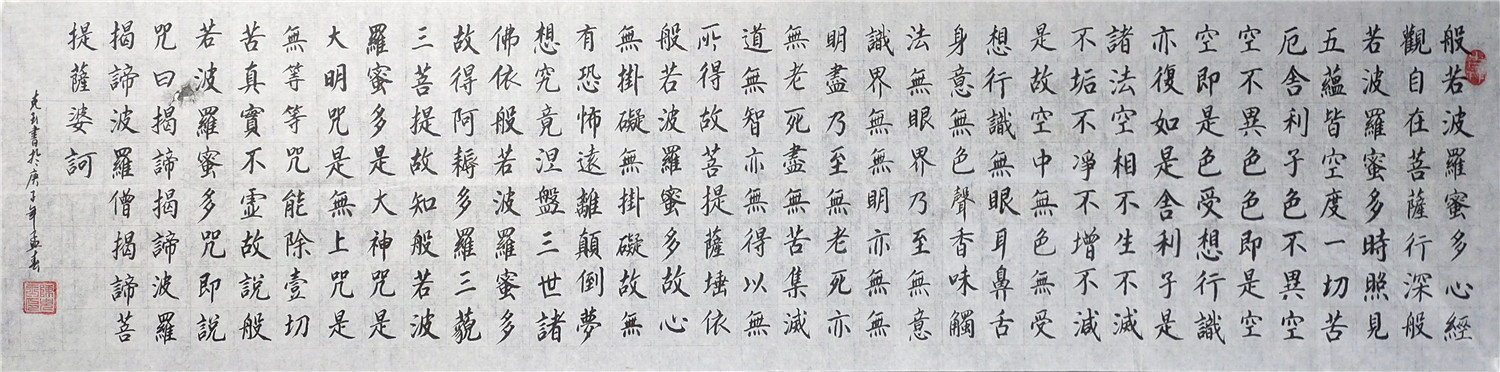 般若波羅蜜多心經
觀自在菩薩行深般
若波羅蜜多時照見
五蘊皆空度一切苦
厄舍利子色不異空
空不異色色即是空
空即是色受想行識
亦復如是舍利子是
諸法空相不生不滅
不垢不凈不增不減
是故空中無色無受
想行識無眼耳鼻舌
身意無色聲香味觸
法無眼界乃至無意
識界無無明亦無無
明盡乃至無老死亦
無老死盡無苦集滅
道無智亦無得以無
所得故菩提薩埵依
般若波羅蜜多故心
無掛礙無掛礙故無
有恐怖遠離顛倒夢
想究竟涅盤三世諸
佛依般若波羅蜜多
故得阿耨多羅三藐
三菩提故知般若波
羅蜜多是大神咒是
大明咒是無上咒是
無等等咒能除壹切
苦真實不虛故說般
若波羅蜜多咒即說
咒曰揭諦揭諦波羅
揭諦波羅僧揭諦菩
提薩婆訶
書於庚子年孟春